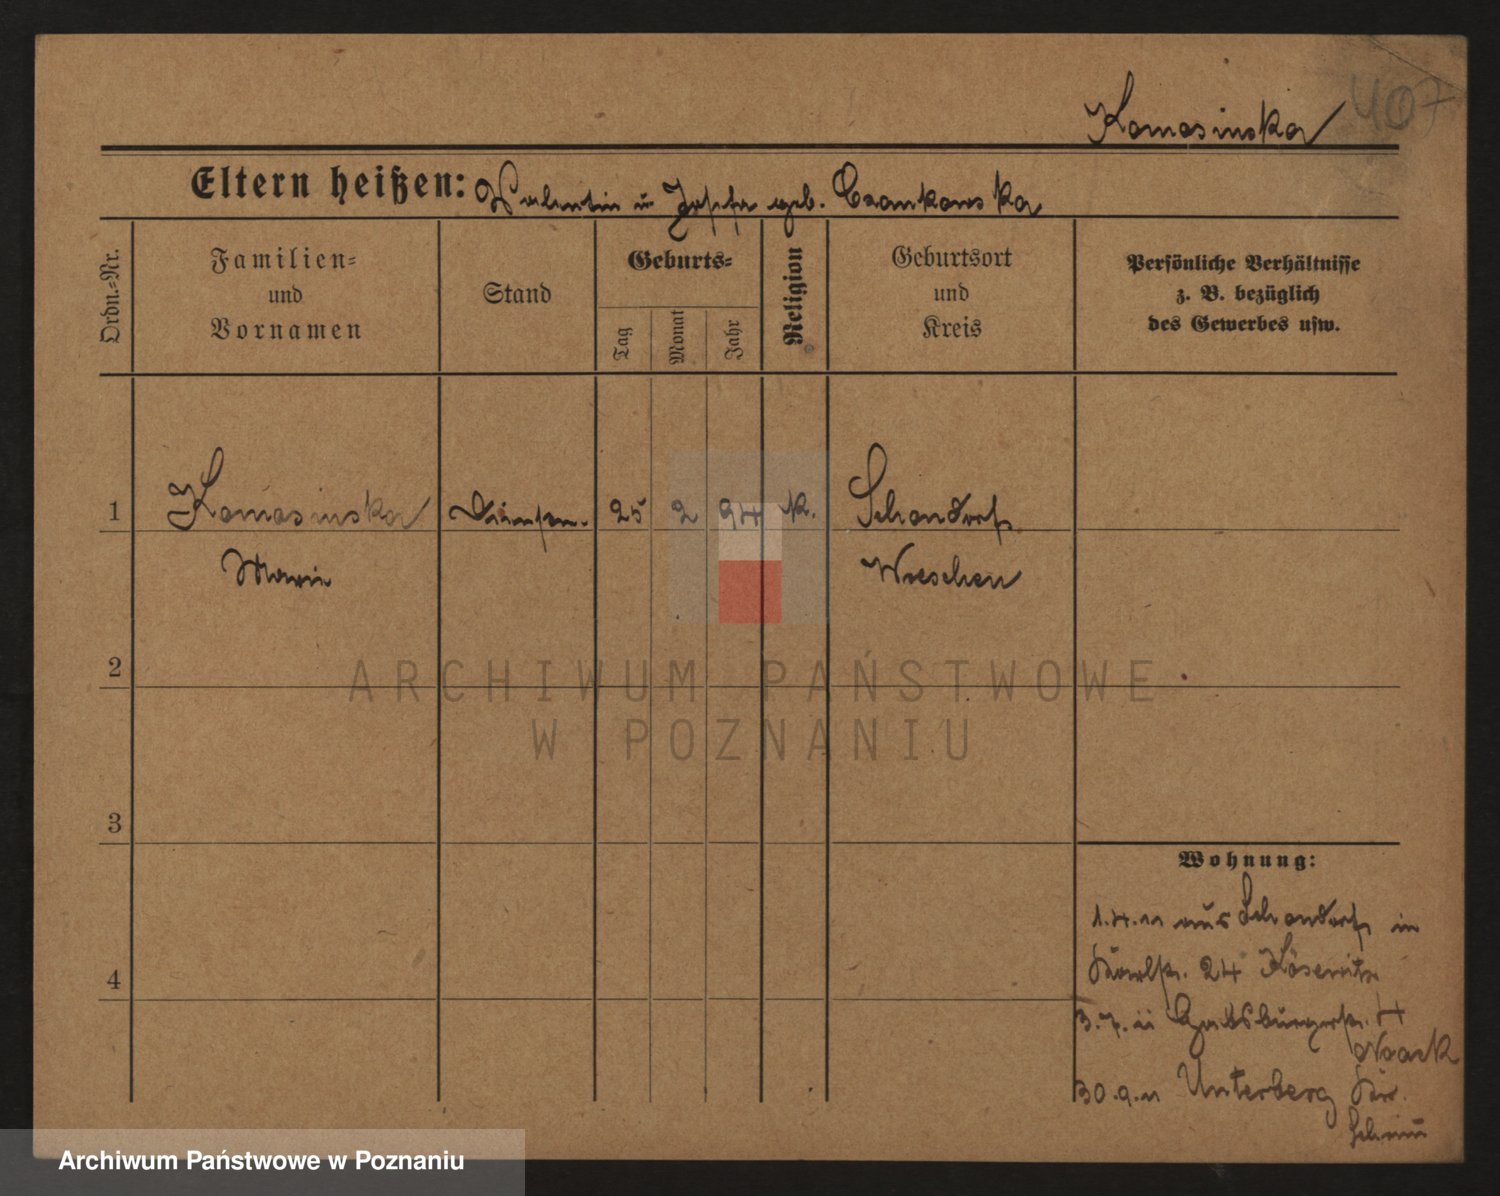 407
Komosinska
Eltern heißen: Valentin u Zofja geb. Czonkowska
Ordn.-Nr.
Familien-
und
Vornamen
Stand
Geburts-
Tag
Monat
Jahr
Religion
Geburtsort
und
Kreis
Persönliche Verhältnisse
z. B. bezüglich
des Gewerbes usw.
1
Komosinska
25 2 94 k.
Schondorf
Marie
Wreschen
2
3
4
Wohnung:
1.4.11 aus Schondorf in
24
3.7.11 4
Noack
30.9.11 Unterberg
ARCHIWUM PAŃSTWOWE
W POZNANIU
Archiwum Państwowe w Poznaniu